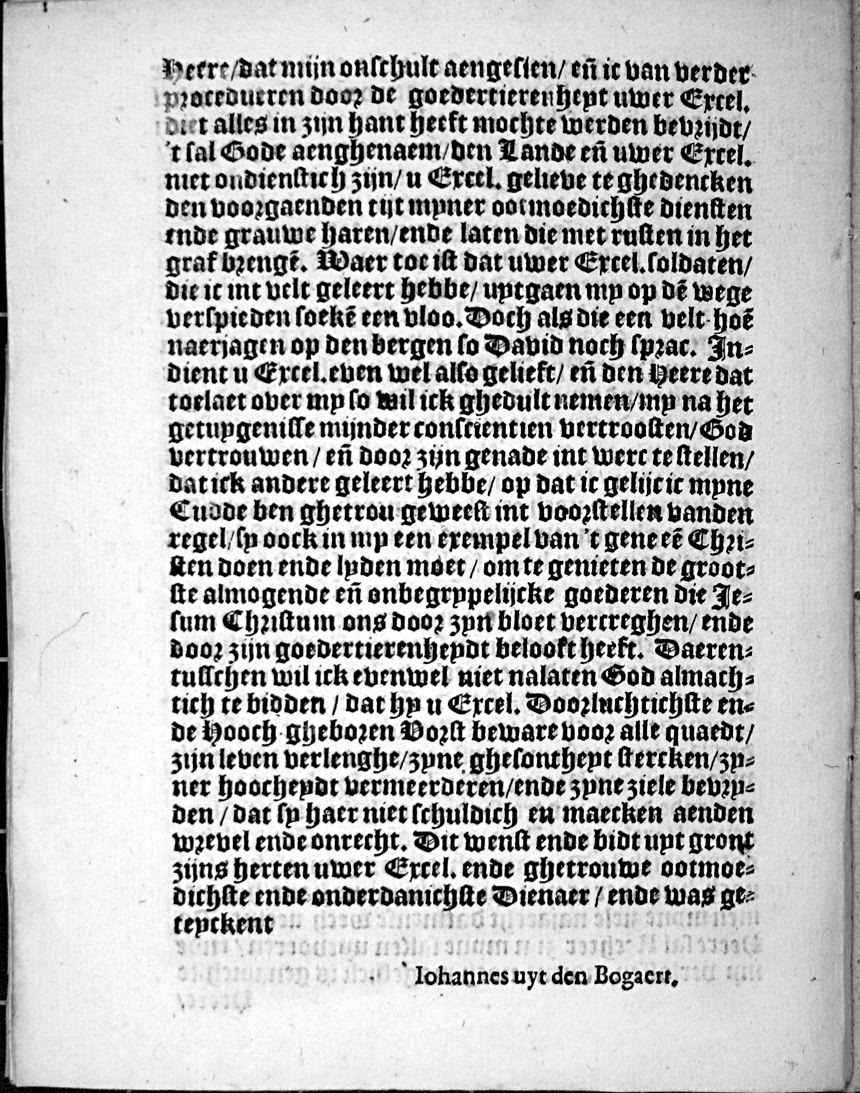 Heere/dat mijn onschult aengesien/ eñ ic van verder
procedueren door de goedertierenheyt uwer Excel.
diet alles in zijn hant heeft mochte werden bevrijdt/
't sal Gode aenghenaem/den Lande eñ uwer Excel.
niet ondienstich zijn/ u Excel. gelieve te ghedencken
den voorgaenden tijt myner ootmoedichste diensten
ende grauwe haren/ende laten die met rusten in het
graf brengē. Waer toe ist dat uwer Excel.soldaten/
die ic int velt geleert hebbe/ uytgaen my op dē wege
verspieden soekē een vloo.Doch als die een velt-hoē
naerjagen op den bergen so David noch sprac. In⸗
dient u Excel.even wel also gelieft/ eñ den Heere dat
toelaet over my so wil ick ghedult nemen/my na het
getuygenisse mijnder conscientien vertroosten/God
vertrouwen/ eñ door zijn genade int werc te stellen/
dat ick andere geleert hebbe/ op dat ic gelijc ic myne
Cudde ben ghetrou geweest int voorstellen vanden
regel/sy oock in my een exempel van 't gene eē Chri⸗
sten doen ende lyden moet/ om te genieten de groot⸗
ste almogende eñ onbegrypelijcke goederen die Je⸗
sum Christum ons door zyn bloet vercreghen/ ende
door zijn goedertierenheydt belooft heeft. Daeren⸗
tusschen wil ick evenwel niet nalaten God almach⸗
tich te bidden/ dat hy u Excel. Doorluchtichste en⸗
de Hooch-gheboren Vorst beware voor alle quaedt/
zijn leven verlenghe/zyne ghesontheyt stercken/zy⸗
ner hoocheydt vermeerderen/ende zyne ziele bevry⸗
den/ dat sy haer niet schuldich en maecken aenden
wrevel ende onrecht. Dit wenst ende bidt uyt gront
zijns herten uwer Excel. ende ghetrouwe ootmoe⸗
dichste ende onderdanichste Dienaer/ ende was ge⸗
teyckent
Iohannes uyt den Bogaert.